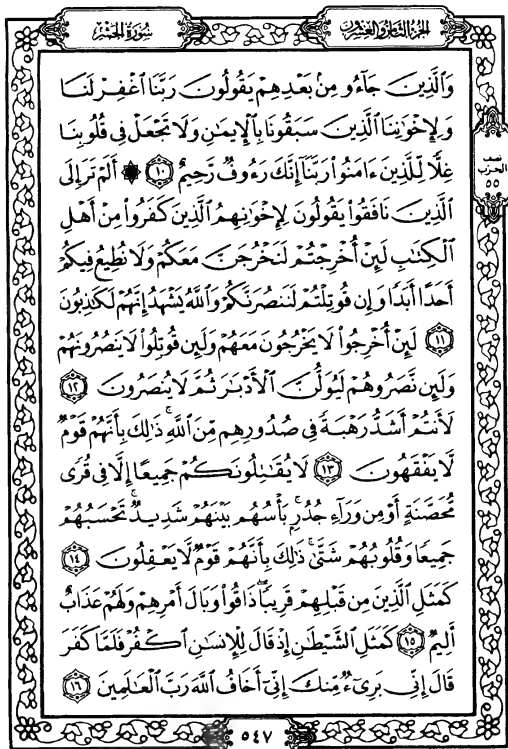 الجزء الثامن والعشرون
سورة الحشر
وَالَّذِينَ جَاءُو مِنۢ بَعْدِهِمْ يَقُولُونَ رَبَّنَا اغْفِرْ لَنَا
وَلِإِخْوَٰنِنَا الَّذِينَ سَبَقُونَا بِالْإِيمَٰنِ وَلَا تَجْعَلْ فِي قُلُوبِنَا
غِلًّا لِّلَّذِينَ ءَامَنُوا رَبَّنَا إِنَّكَ رَءُوفٌ رَّحِيمٌ ١٠ ۞ أَلَمْ تَرَ إِلَى
الَّذِينَ نَافَقُوا يَقُولُونَ لِإِخْوَٰنِهِمُ الَّذِينَ كَفَرُوا مِنْ أَهْلِ
الْكِتَٰبِ لَئِنْ أُخْرِجْتُمْ لَنَخْرُجَنَّ مَعَكُمْ وَلَا نُطِيعُ فِيكُمْ
أَحَدًا أَبَدًا وَإِن قُوتِلْتُمْ لَنَنصُرَنَّكُمْ وَاللَّهُ يَشْهَدُ إِنَّهُمْ لَكَٰذِبُونَ
١١ لَئِنْ أُخْرِجُوا لَا يَخْرُجُونَ مَعَهُمْ وَلَئِن قُوتِلُوا لَا يَنصُرُونَهُمْ
وَلَئِن نَّصَرُوهُمْ لَيُوَلُّنَّ الْأَدْبَٰرَ ثُمَّ لَا يُنصَرُونَ ١٢
لَأَنتُمْ أَشَدُّ رَهْبَةً فِي صُدُورِهِم مِّنَ اللَّهِ ۚ ذَٰلِكَ بِأَنَّهُمْ قَوْمٌ
لَّا يَفْقَهُونَ ١٣ لَا يُقَٰتِلُونَكُمْ جَمِيعًا إِلَّا فِي قُرًى
مُّحَصَّنَةٍ أَوْ مِن وَرَاءِ جُدُرٍ ۚ بَأْسُهُم بَيْنَهُمْ شَدِيدٌ ۚ تَحْسَبُهُمْ
جَمِيعًا وَقُلُوبُهُمْ شَتَّىٰ ۚ ذَٰلِكَ بِأَنَّهُمْ قَوْمٌ لَّا يَعْقِلُونَ ١٤
كَمَثَلِ الَّذِينَ مِن قَبْلِهِمْ قَرِيبًا ۖ ذَاقُوا وَبَالَ أَمْرِهِمْ وَلَهُمْ عَذَابٌ
أَلِيمٌ ١٥ كَمَثَلِ الشَّيْطَٰنِ إِذْ قَالَ لِلْإِنسَٰنِ اكْفُرْ فَلَمَّا كَفَرَ
قَالَ إِنِّي بَرِيءٌ مِّنكَ إِنِّي أَخَافُ اللَّهَ رَبَّ الْعَٰلَمِينَ ١٦
نصف
الحزب
٥٥
٥٤٧